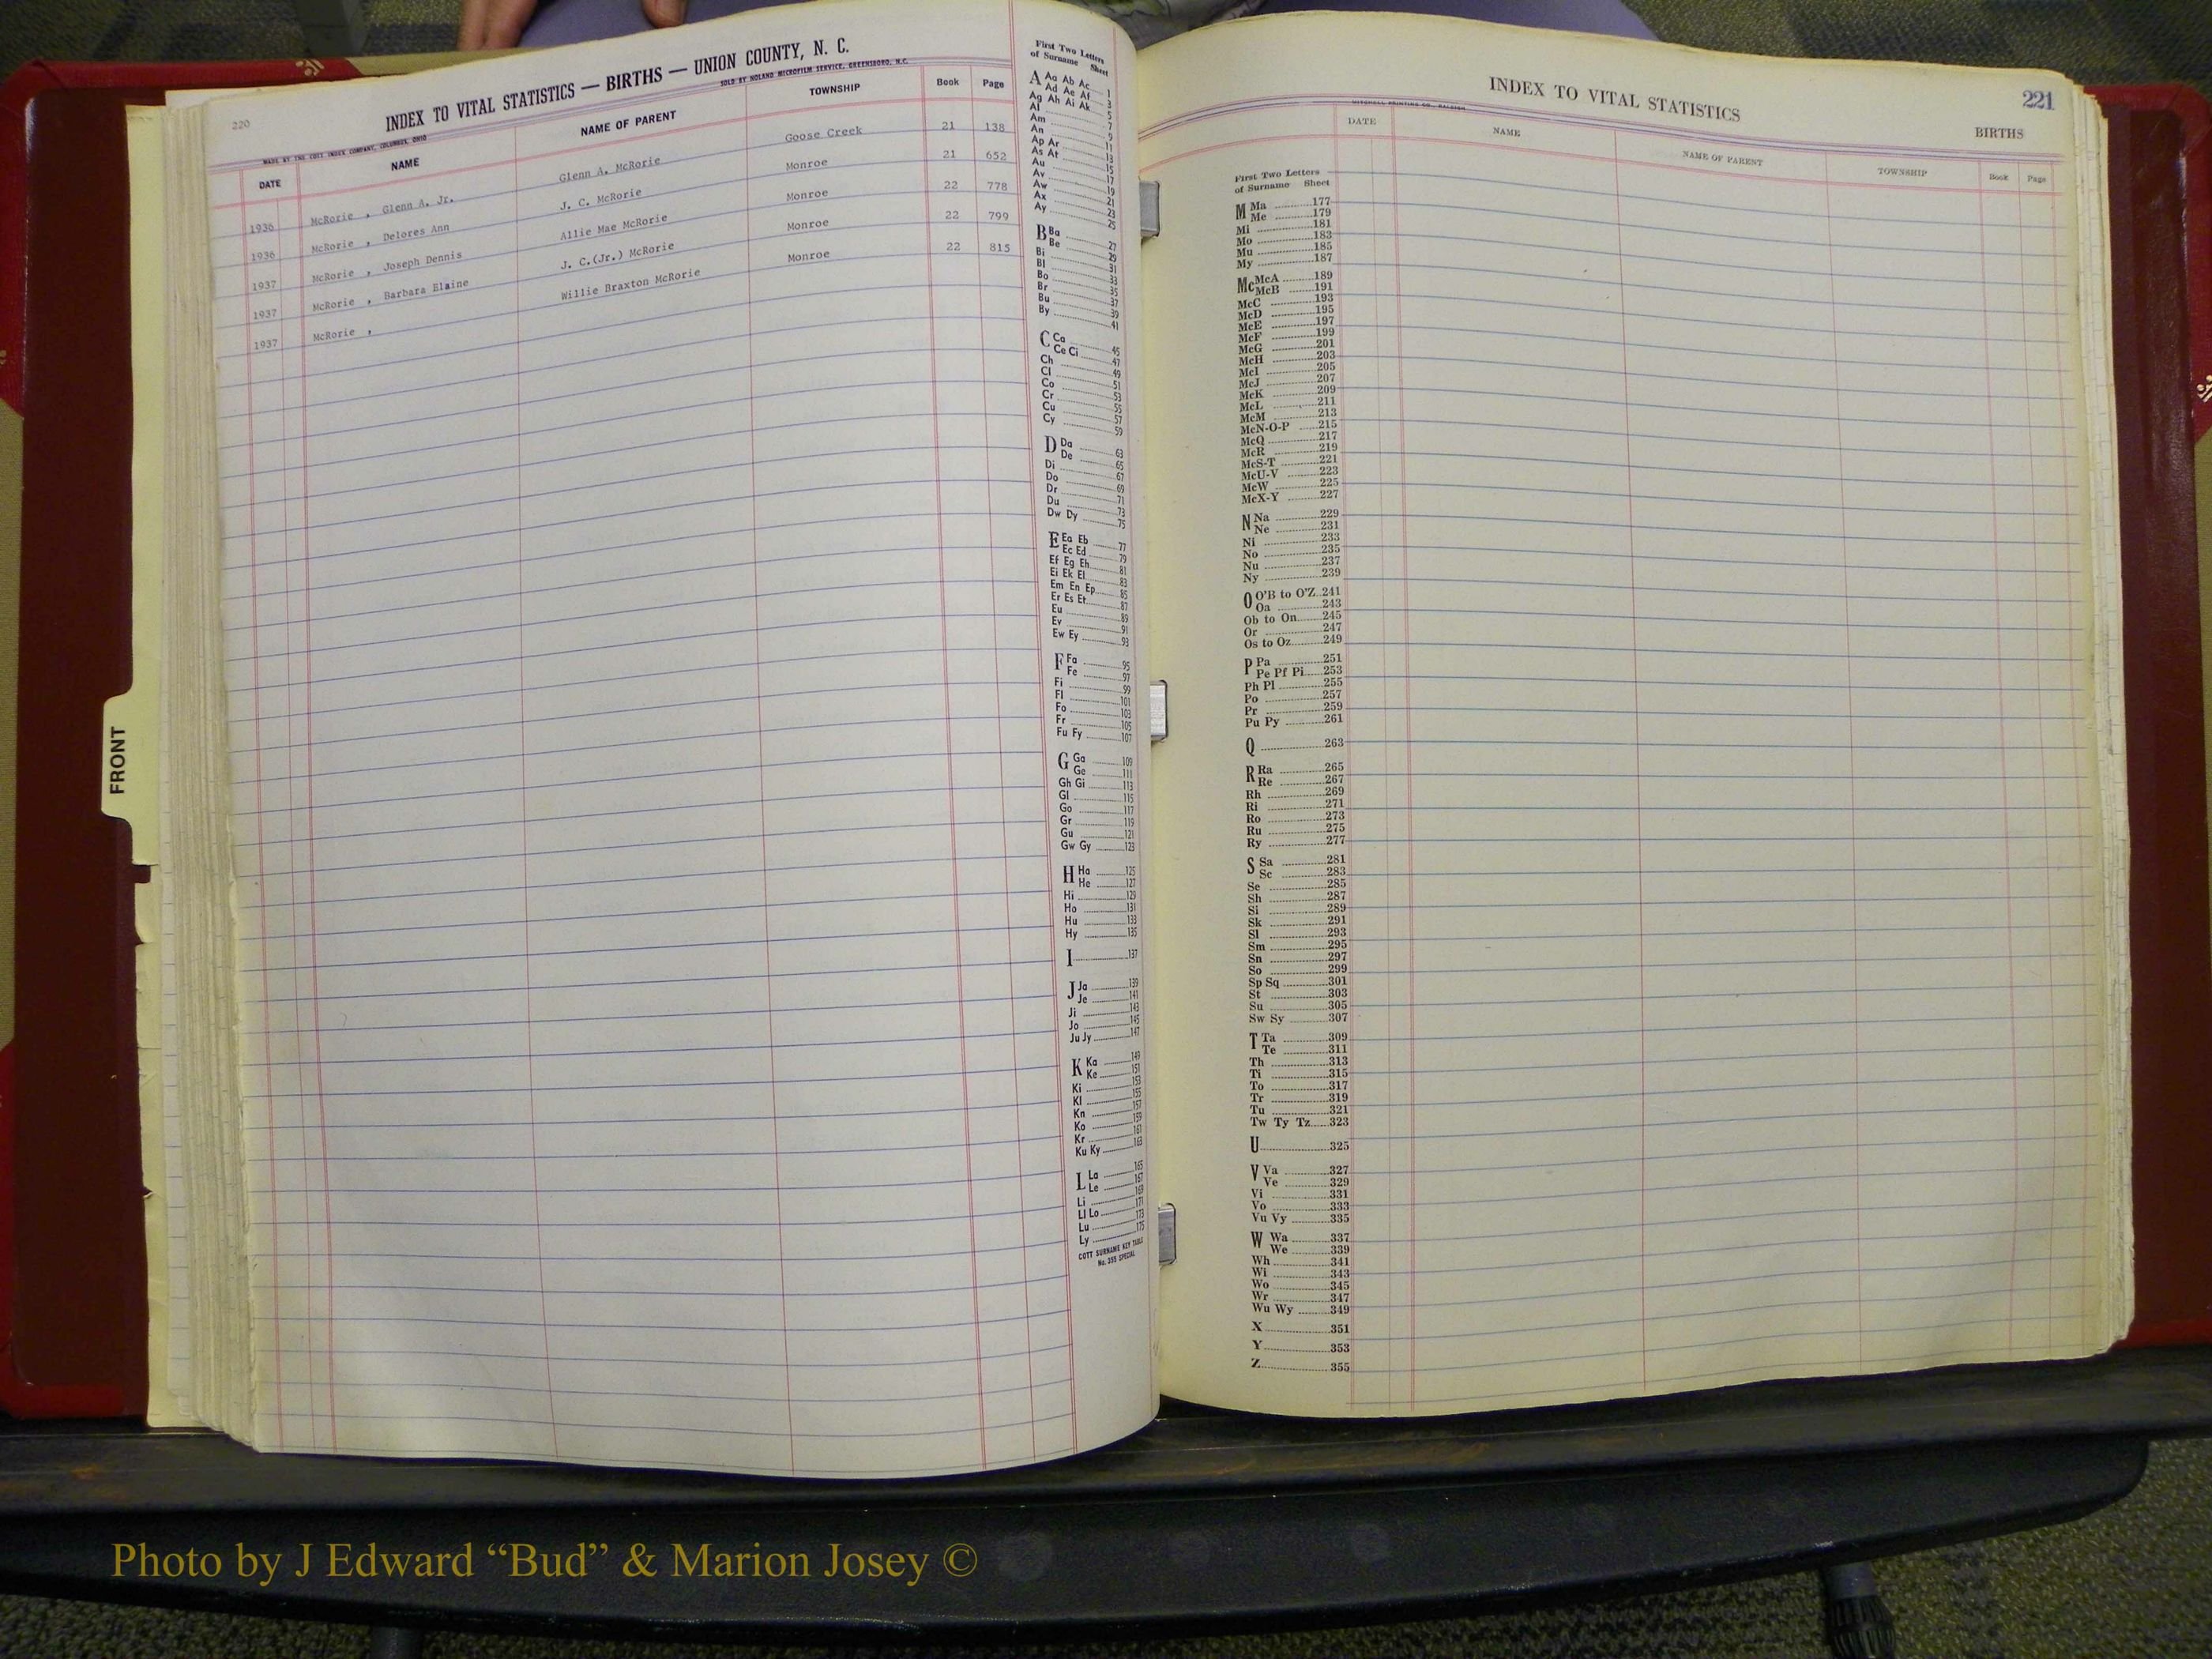 220
INDEX TO VITAL STATISTICS — BIRTHS — UNION COUNTY, N. C.
MADE BY THE COTT INDEX COMPANY, COLUMBUS, OHIO
SOLD BY NOLAND MICROFILM SERVICE, GREENSBORO, N.C.
DATE NAME NAME OF PARENT TOWNSHIP Book Page
1936 McRorie , Glenn A. Jr. Glenn A. McRorie Goose Creek 21 138
1936 McRorie , Delores Ann J. C. McRorie Monroe 21 652
1937 McRorie , Joseph Dennis Allie Mae McRorie Monroe 22 778
1937 McRorie , Barbara Elaine J. C.(Jr.) McRorie Monroe 22 799
1937 McRorie , Willie Braxton McRorie Monroe 22 815
First Two Letters
of Surname Sheet
A Aa Ab Ac 1
Ad Ae Af 3
Ag Ah Ai Ak 5
Al 7
Am 9
An 11
Ap Ar 13
As At 15
Au 17
Av 19
Aw 21
Ax 23
Ay 25
B Ba 27
Be 29
Bi 31
Bl 33
Bo 35
Br 37
Bu 39
By 41
C Ca 45
Ce Ci 47
Ch 49
Cl 51
Co 53
Cr 55
Cu 57
Cy 59
D Da 63
De 65
Di 67
Do 69
Dr 71
Du 73
Dw Dy 75
E Ea Eb 77
Ec Ed 79
Ef Eg Eh 81
Ei Ek El 83
Em En Ep 85
Er Es Et 87
Eu 89
Ev 91
Ew Ey 93
F Fa 95
Fe 97
Fi 99
Fl 101
Fo 103
Fr 105
Fu Fy 107
G Ga 109
Ge 111
Gh Gi 113
Gl 115
Go 117
Gr 119
Gu 121
Gw Gy 123
H Ha 125
He 127
Hi 129
Ho 131
Hu 133
Hy 135
I 137
J Ja 139
Je 141
Ji 143
Jo 145
Ju Jy 147
K Ka 149
Ke 151
Ki 153
Kl 155
Kn 157
Ko 159
Kr 161
Ku Ky 163
L La 165
Le 167
Li 169
Ll Lo 171
Lu 173
Ly 175
COTT SURNAME KEY TABLE
No. 355 SPECIAL
INDEX TO VITAL STATISTICS 221
MITCHELL PRINTING CO., RALEIGH
BIRTHS
DATE NAME NAME OF PARENT TOWNSHIP Book Page
First Two Letters
of Surname Sheet
M Ma 177
Me 179
Mi 181
Mo 183
Mu 185
My 187
Mc McA 189
McB 191
McC 193
McD 195
McE 197
McF 199
McG 201
McH 203
McI 205
McJ 207
McK 209
McL 211
McM 213
McN-O-P 215
McQ 217
McR 219
McS-T 221
McU-V 223
McW 225
McX-Y 227
N Na 229
Ne 231
Ni 233
No 235
Nu 237
Ny 239
O O'B to O'Z 241
Oa 243
Ob to On 245
Or 247
Os to Oz 249
P Pa 251
Pe Pf Pi 253
Ph Pl 255
Po 257
Pr 259
Pu Py 261
Q 263
R Ra 265
Re 267
Rh 269
Ri 271
Ro 273
Ru 275
Ry 277
S Sa 281
Sc 283
Se 285
Sh 287
Si 289
Sk 291
Sl 293
Sm 295
Sn 297
So 299
Sp Sq 301
St 303
Su 305
Sw Sy 307
T Ta 309
Te 311
Th 313
Ti 315
To 317
Tr 319
Tu 321
Tw Ty Tz 323
U 325
V Va 327
Ve 329
Vi 331
Vo 333
Vu Vy 335
W Wa 337
We 339
Wh 341
Wi 343
Wo 345
Wr 347
Wu Wy 349
X 351
Y 353
Z 355
FRONT
Photo by J Edward “Bud” & Marion Josey ©